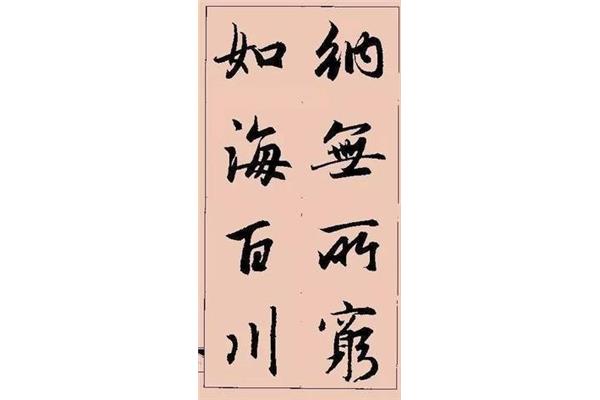 納無所窮
如海百川